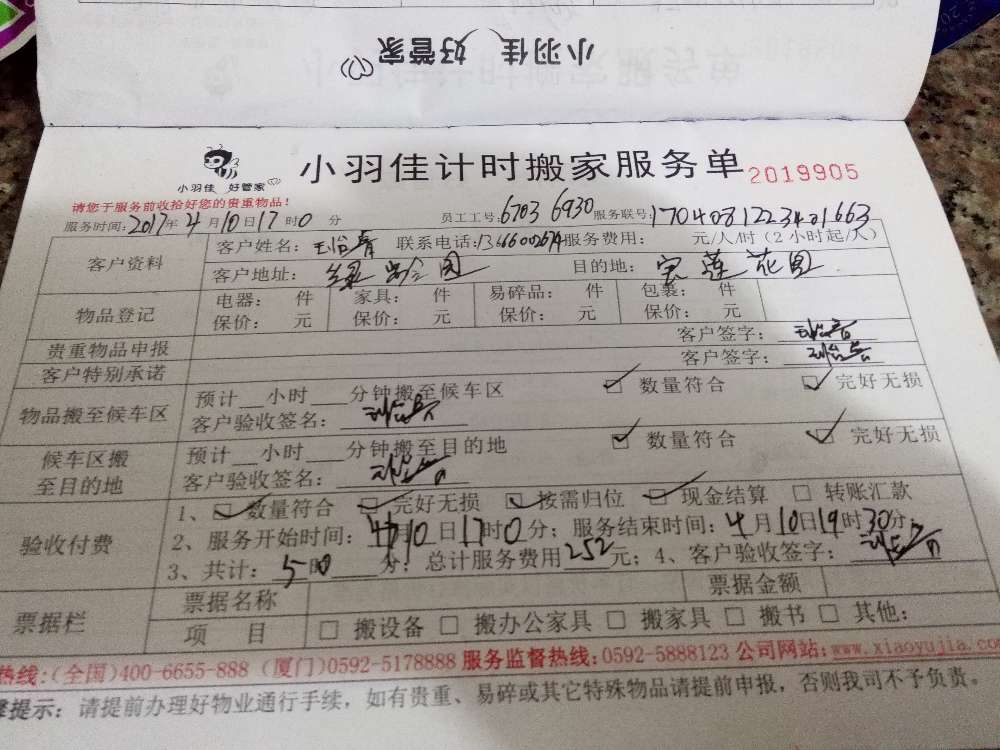 小羽佳 好管家
小羽佳 好管家
小羽佳计时搬家服务单 2019905
请您于服务前收拾好您的贵重物品!
服务时间:2017年4月10日17时0分 员工工号:6703 6930 服务联号:1704081223401663
客户资料
客户姓名: 联系电话: 服务费用: 元/人/时(2小时起/人)
客户地址: 目的地: 宝莲花园
物品登记
电器: 件 家具: 件 易碎品: 件 包裹: 件
保价: 元 保价: 元 保价: 元 保价: 元
贵重物品申报 客户签字:
客户特别承诺 客户签字:
物品搬至候车区
预计__小时___分钟搬至候车区 ☑ 数量符合 ☑ 完好无损
客户验收签名:
候车区搬至目的地
预计__小时___分钟搬至目的地 ☑ 数量符合 ☑ 完好无损
客户验收签名:
验收付费
1、☑ 数量符合 ☑ 完好无损 ☑ 按需归位 ☑ 现金结算 □ 转账汇款
2、服务开始时间:4月10日17时0分;服务结束时间:4月10日19时30分;
3、共计: 分;总计服务费用252元;4、客户验收签字:
票据栏
票据名称 票据金额
项 目 □ 搬设备 □ 搬办公家具 □ 搬家具 □ 搬书 □ 其他:
热线:(全国)400-6655-888 (厦门)0592-5178888 服务监督热线:0592-5888123 公司网站:www.xiaoyujia.co
提示:请提前办理好物业通行手续,如有贵重、易碎或其它特殊物品请提前申报,否则我司不予负责。